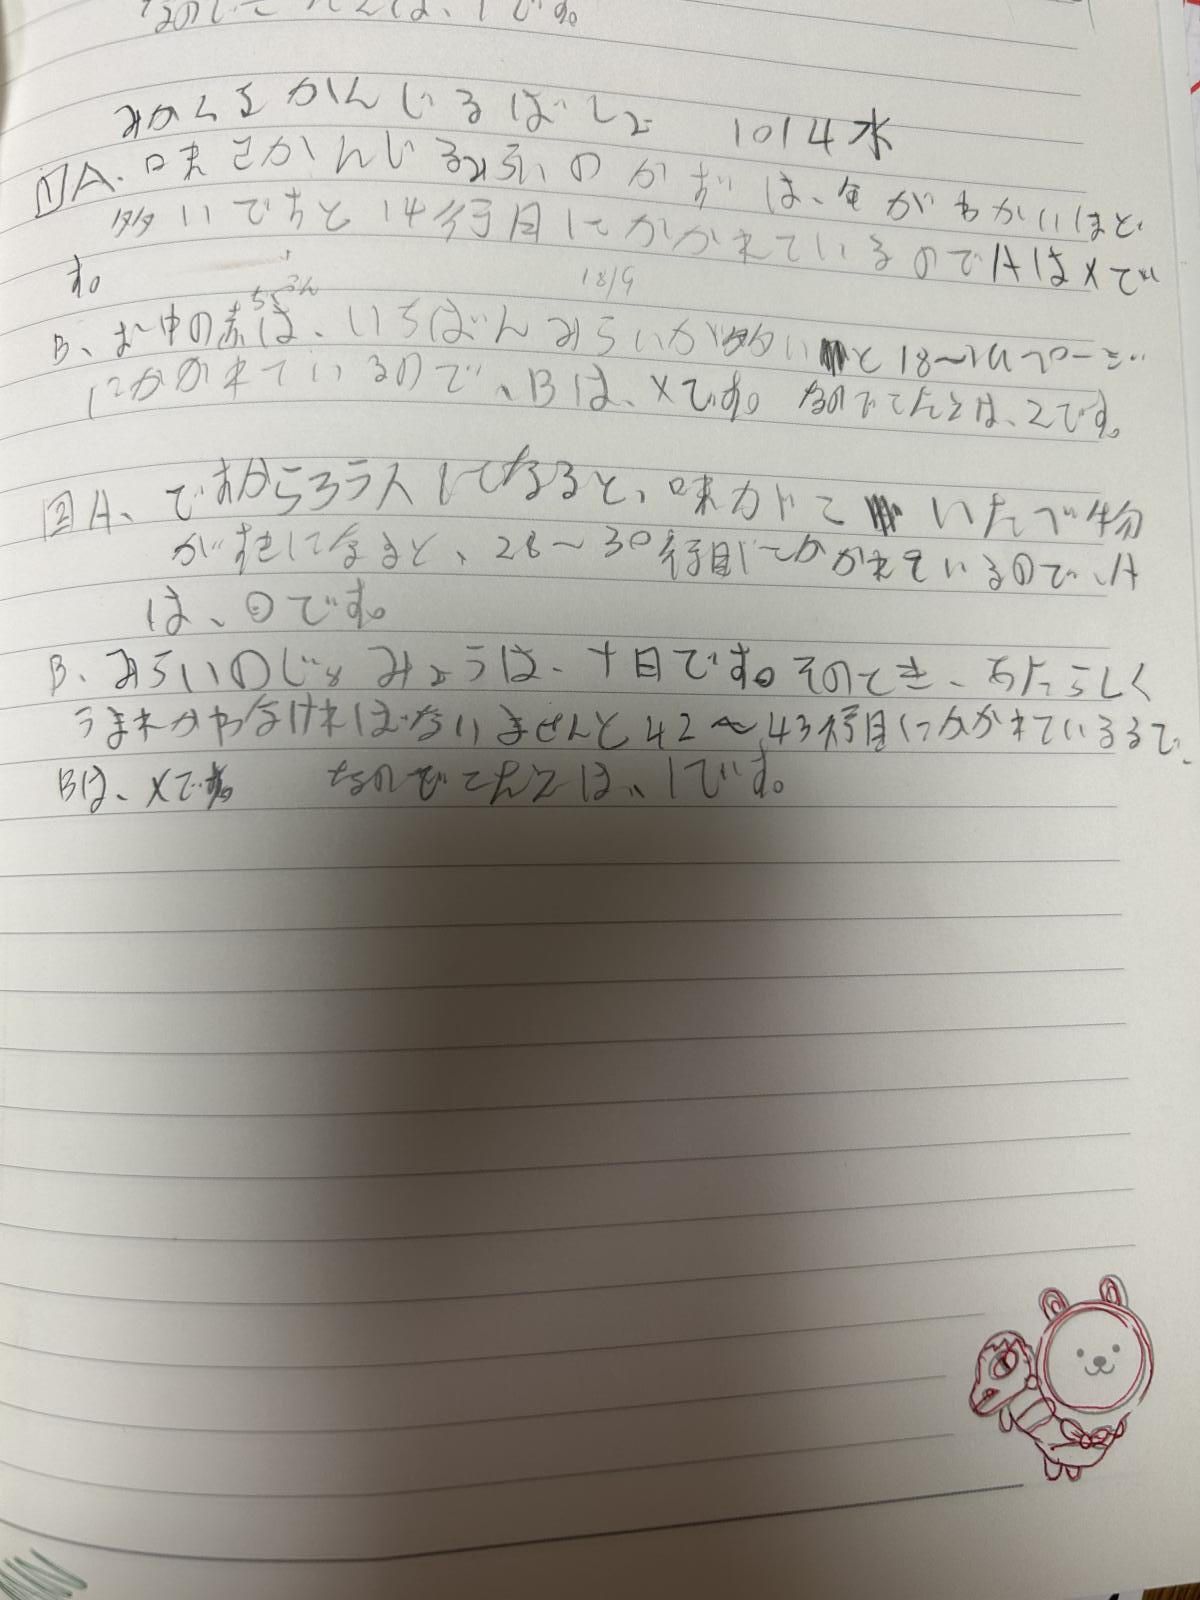 なのでこたえは、1です。
みかくをかんじるばしょ 10/4水
1 A. 味をかんじるみらいのかずは、年がわかいほど
多いですと14行目にかかれているのでAは×で
す。
ちゃん 18/9
B、お中の赤は、いちばんみらいが多いと18〜
にかかれているので、Bは、×です。なのでこたえは、2です。
2 A、になると、味がいたべ物
がすきになると、28〜30行目にかかれているので、A
は、○です。
B、みらいのじゅみょうは、十日です。そのとき、あたらしく
うまれかわなければないませんと42〜43行目にかかれているるで、
Bは、×です。なのでこたえは、1です。